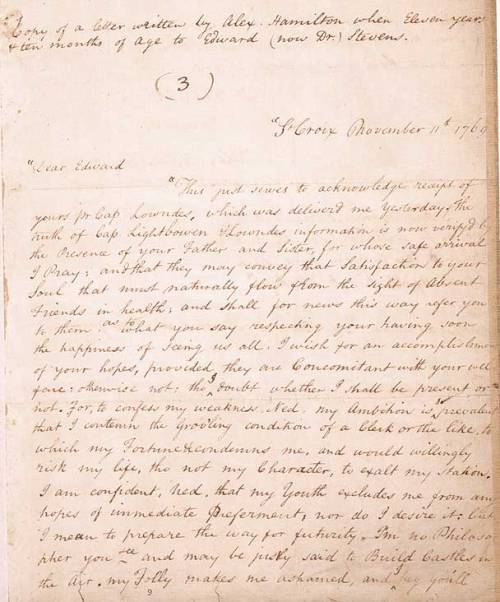 Copy of a letter written by Alex. Hamilton when Eleven years
& ten months of Age to Edward (now Dr.) Stevens.
(3)
"St Croix November 11th 1769
"Dear Edward
"This just serves to acknowledge receipt of
yours pr Cap Lowndes, which was deliver'd me Yesterday. The
truth of Cap. Lightbowen & Lowndes information is now verify'd by
the Presence of your Father and Sister, for whose safe arrival
I Pray; and that they may convey that Satisfaction to your
Soul that must naturally flow from the sight of Absent
Friends in health; and shall for news this way refer you
to them as to what you say respecting your having soon
the happiness of seeing us all. I wish for an accomplishmen
of your hopes, provided they are Concomitant with your wel
fare: otherwise not: tho doubt whether I shall be present or
not. For, to confess my weakness. Ned. my Ambition is prevalent
that I contemn the Groviling condition of a Clerk or the like, to
which my Fortune &c condemns me, and would willingly
risk my life, tho not my Character, to exalt my Station.
I am confident, Ned. that my Youth excludes me from any
hopes of immediate Preferment, nor do I desire it: but
I mean to prepare the way for futurity. I'm no Philoso
pher you see and may be justly said to Build Castles in
the Air. my Folly makes me ashamed, and beg you'll